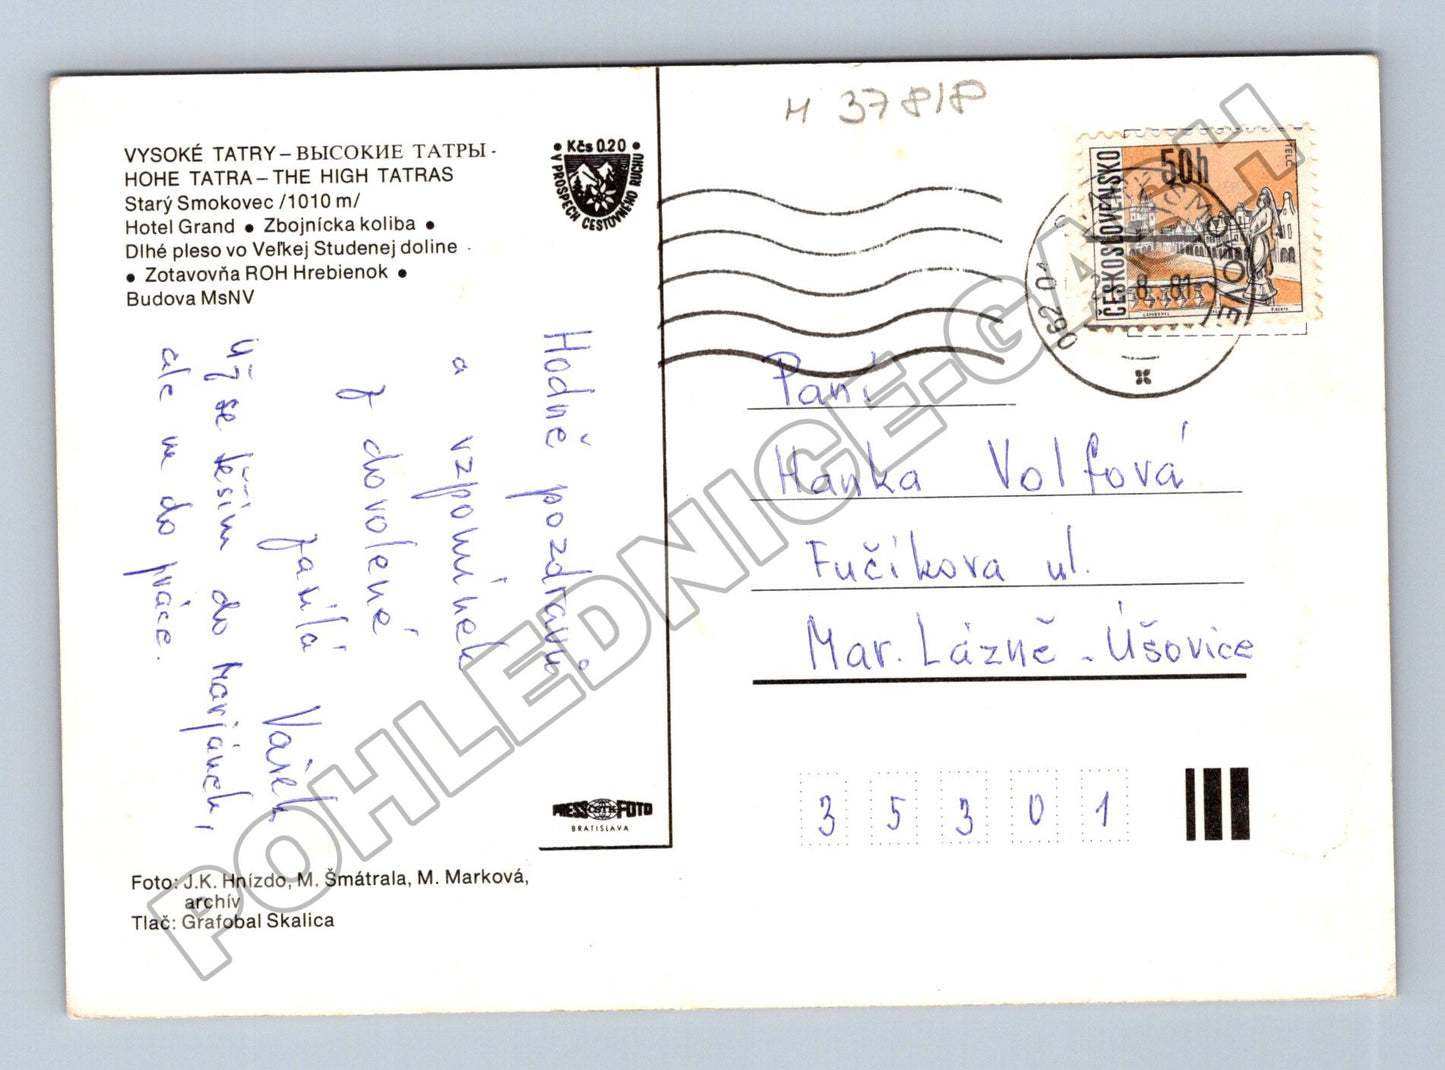 VYSOKÉ TATRY – ВЫСОКИЕ ТАТРЫ -
HOHE TATRA – THE HIGH TATRAS
Starý Smokovec /1010 m/
Hotel Grand ● Zbojnícka koliba ●
Dlhé pleso vo Veľkej Studenej doline
● Zotavovňa ROH Hrebienok ●
Budova MsNV
● Kčs 0.20 ●
V PROSPECH CESTOVNÉHO RUCHU
Hodně pozdravů
a vzpomínek
z dovolené
zasílá Vašek
Už se těším do Marjánek,
ale ne do práce.
PRESS ČSTK FOTO
BRATISLAVA
Foto: J.K. Hnízdo, M. Šmátrala, M. Marková,
archív
Tlač: Grafobal Skalica
M 37818
ČESKOSLOVENSKO
50h
TELČ
8. 81
062 01
Paní
Hanka Volfová
Fučíkova ul.
Mar. Lázně - Úšovice
3 5 3 0 1
POHLEDNICE-GALASH